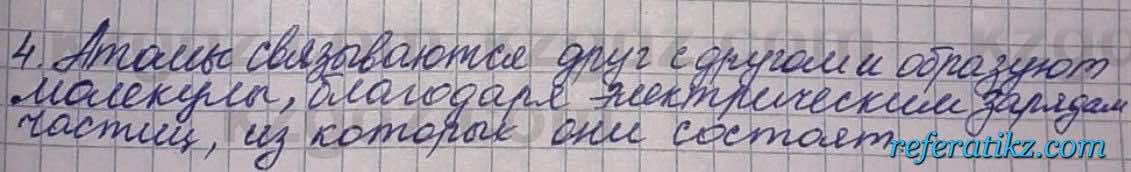 4. Атомы связываются друг с другом и образуют
молекулы, благодаря электрическим зарядам
частиц, из которых они состоят.
referatikz.com